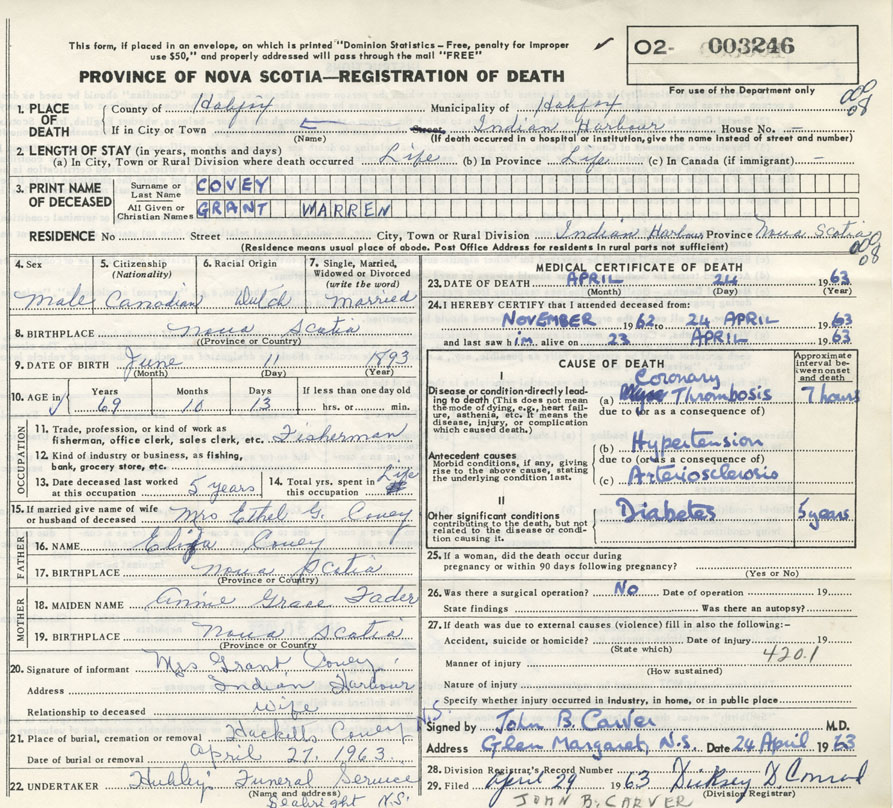 This form, if placed in an envelope, on which is printed "Dominion Statistics – Free, penalty for improper
use $50," and properly addressed will pass through the mail "FREE"
✓
O2- 003246
PROVINCE OF NOVA SCOTIA—REGISTRATION OF DEATH
For use of the Department only
1. PLACE OF DEATH
County of Halifax Municipality of Halifax
If in City or Town (Name) Street Indian Harbour House No. —
(If death occurred in a hospital or institution, give the name instead of street and number)
2. LENGTH OF STAY (in years, months and days)
(a) In City, Town or Rural Division where death occurred Life (b) In Province Life (c) In Canada (if immigrant) —
3. PRINT NAME OF DECEASED
Surname or Last Name COVEY
All Given or Christian Names GRANT WARREN
RESIDENCE No Street City, Town or Rural Division Indian Harbour Province Nova Scotia
(Residence means usual place of abode. Post Office Address for residents in rural parts not sufficient)
4. Sex Male
5. Citizenship (Nationality) Canadian
6. Racial Origin Dutch
7. Single, Married, Widowed or Divorced (write the word) Married
8. BIRTHPLACE Nova Scotia
(Province or Country)
9. DATE OF BIRTH June 11 1893
(Month) (Day) (Year)
10. AGE in Years 69 Months 10 Days 13 If less than one day old hrs. or min.
OCCUPATION
11. Trade, profession, or kind of work as fisherman, office clerk, sales clerk, etc. Fisherman
12. Kind of industry or business, as fishing, bank, grocery store, etc.
13. Date deceased last worked at this occupation 5 years
14. Total yrs. spent in this occupation Life
15. If married give name of wife or husband of deceased Mrs Ethel G. Covey
FATHER
16. NAME Covey
17. BIRTHPLACE Nova Scotia
(Province or Country)
MOTHER
18. MAIDEN NAME Annie Grace Fader
19. BIRTHPLACE Nova Scotia
(Province or Country
20. Signature of informant Mrs Grant Covey
Address Indian Harbour
Relationship to deceased wife
21. Place of burial, cremation or removal Hacketts Covey N.S.
Date of burial or removal April 27, 1963
22. UNDERTAKER Hubley's Funeral Service
(Name and address)
Sealright N.S.
MEDICAL CERTIFICATE OF DEATH
23. DATE OF DEATH APRIL 24 1963
(Month) (Day) (Year)
24. I HEREBY CERTIFY that I attended deceased from:
NOVEMBER 1962 to 24 APRIL 1963
and last saw him alive on 23 APRIL 1963
CAUSE OF DEATH
Approximate interval between onset and death
I
Disease or condition directly leading to death (This does not mean the mode of dying, e.g., heart failure, asthenia, etc. It means the disease, injury, or complication which caused death.)
(a) Coronary Thrombosis 7 hours
due to (or as a consequence of)
Antecedent causes
Morbid conditions, if any, giving rise to the above cause, stating the underlying condition last.
(b) Hypertension
due to (or as a consequence of)
(c) Arteriosclerosis
II
Other significant conditions contributing to the death, but not related to the disease or condition causing it.
Diabetes 5 years
25. If a woman, did the death occur during
pregnancy or within 90 days following pregnancy?
(Yes or No)
26. Was there a surgical operation? No Date of operation 19
State findings Was there an autopsy?
27. If death was due to external causes (violence) fill in also the following:–
Accident, suicide or homicide? Date of injury 19
(State which)
420.1
Manner of injury
(How sustained)
Nature of injury
Specify whether injury occurred in Industry, in home, or in public place
Signed by John B. Carver M.D.
Address Glen Margaret, N.S. Date 24 April 1963
28. Division Registrar's Record Number
29. Filed April 29 1963 D. Conrad
(Division Registrar)
JOHN B. CARVER